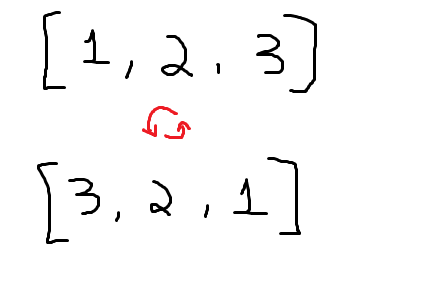 [1, 2, 3]
[3, 2, 1]